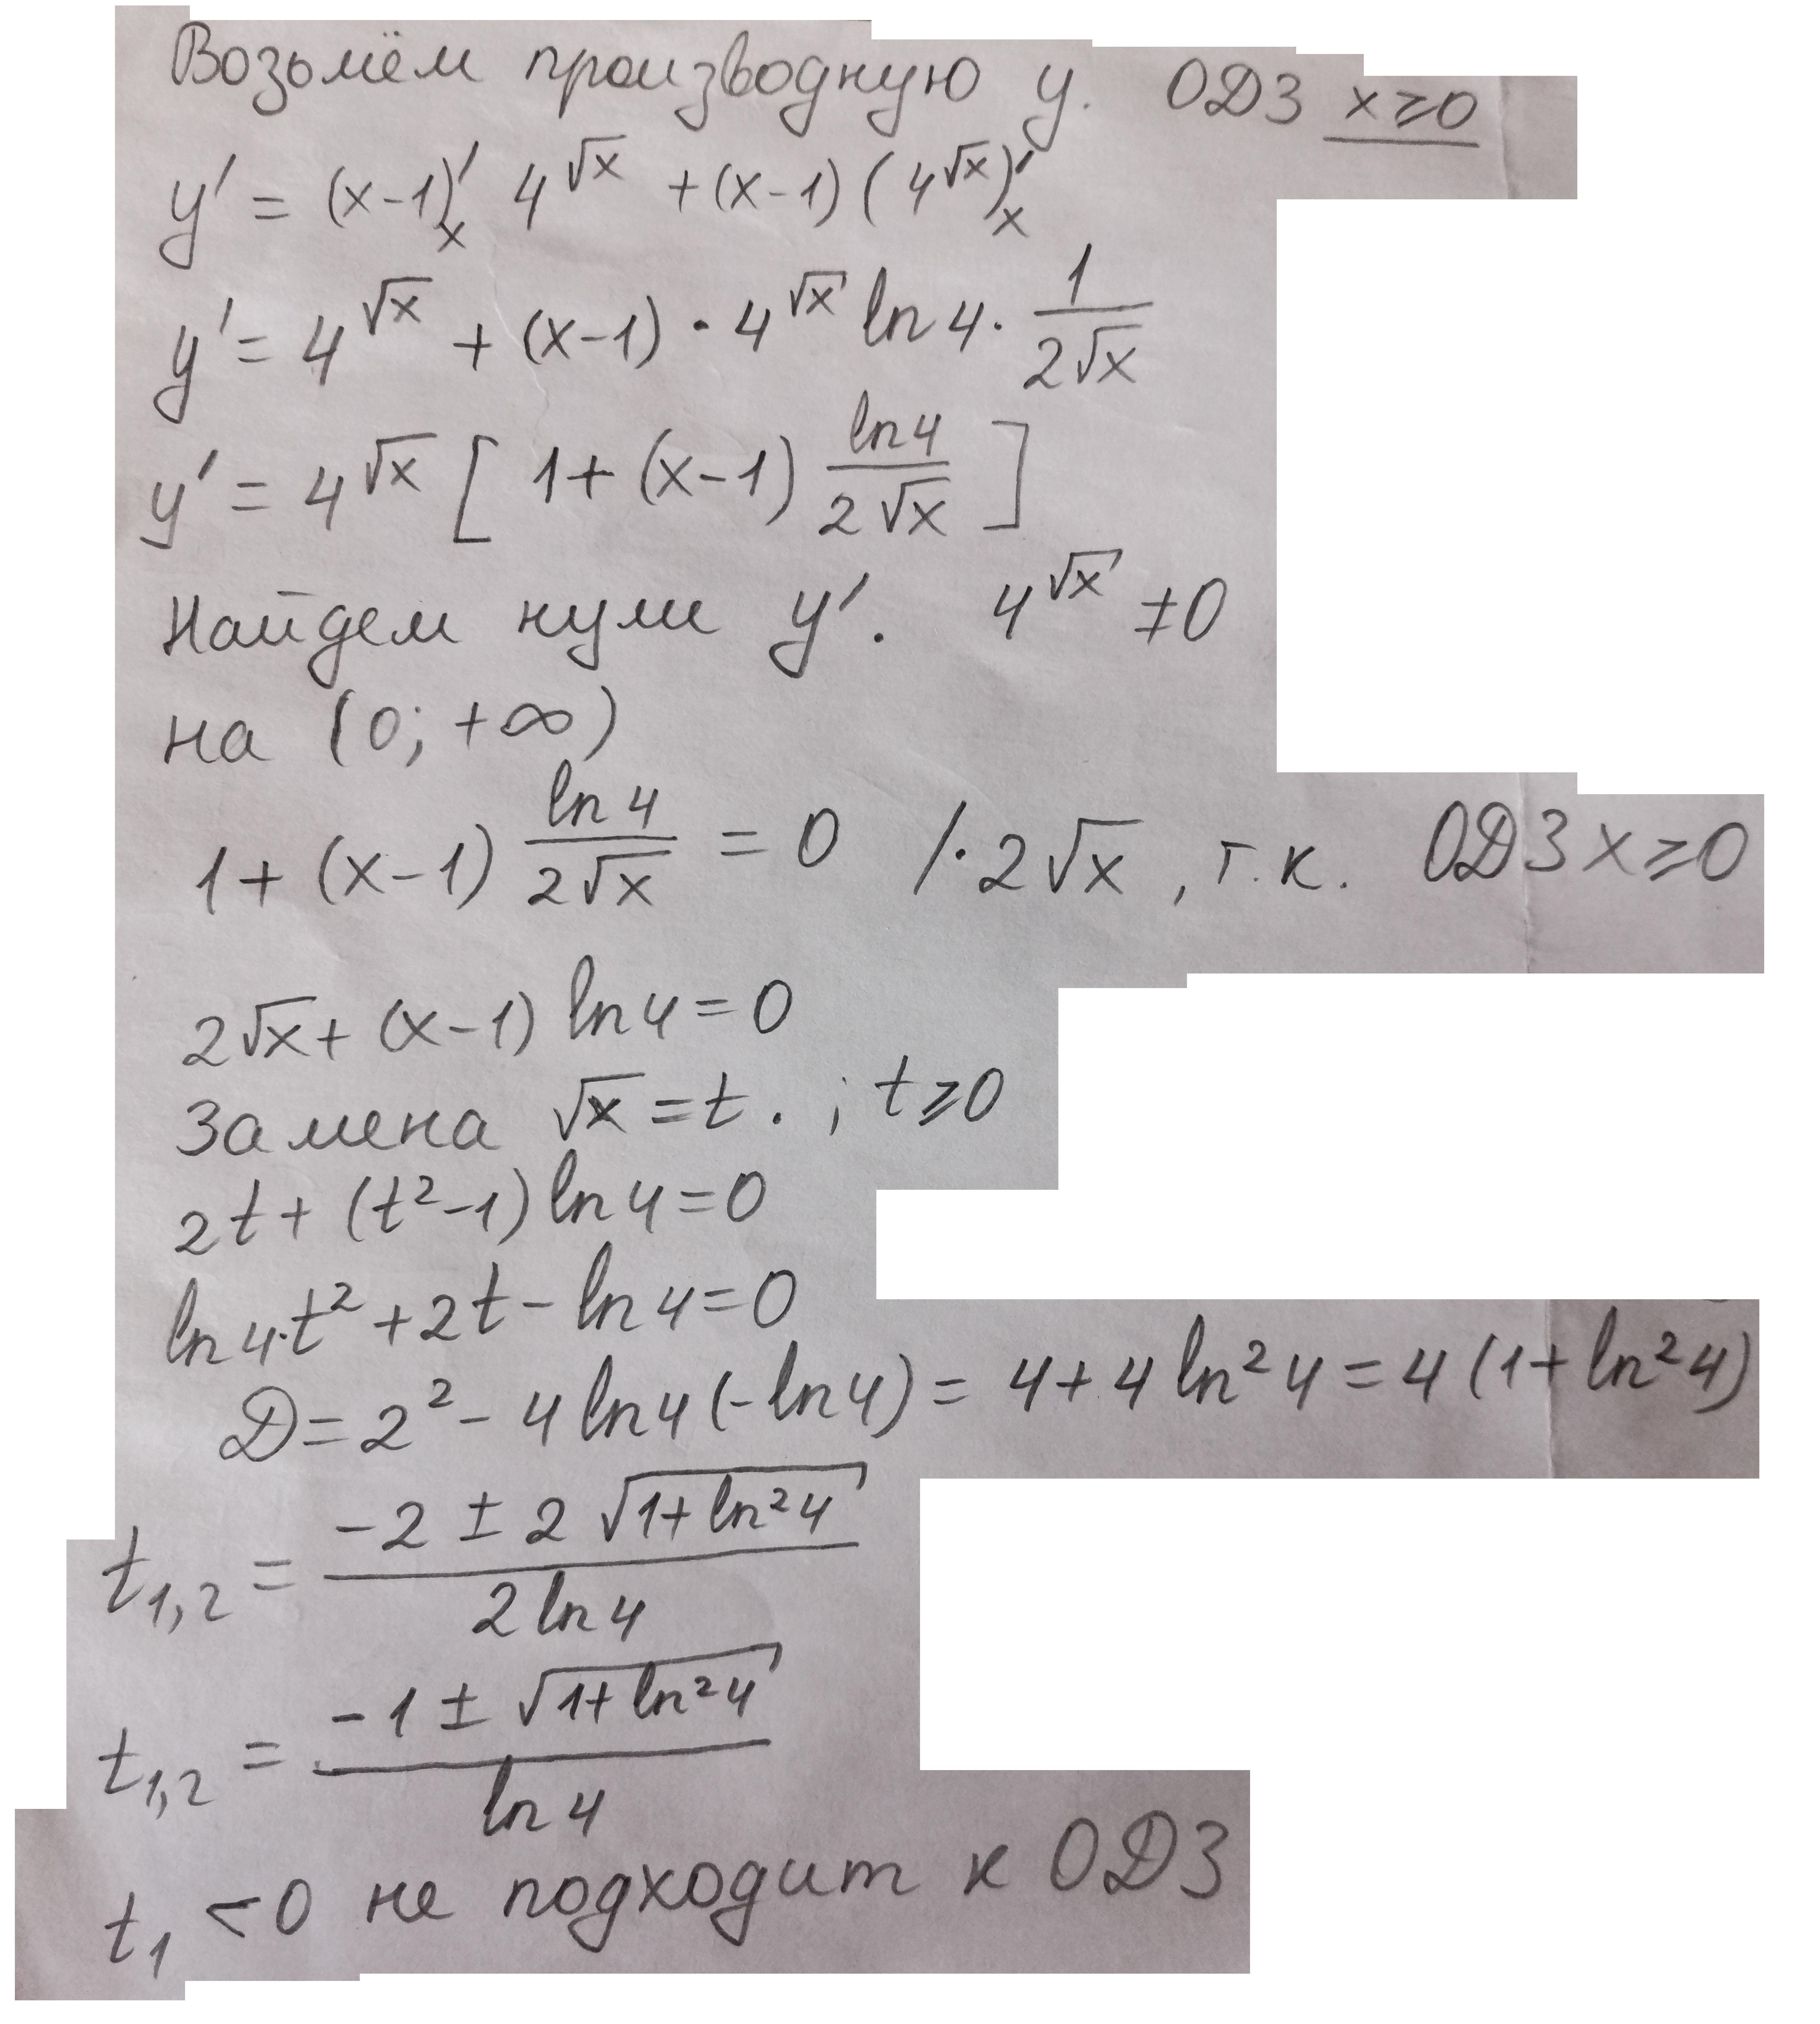 Возьмём производную y. ОДЗ x≥0
y' = (x-1)'ₓ 4^√x + (x-1) (4^√x)'ₓ
y' = 4^√x + (x-1) · 4^√x ln4 · 1/(2√x)
y' = 4^√x [ 1 + (x-1) ln4/(2√x) ]
Найдем нули y'. 4^√x ≠ 0
на (0; +∞)
1 + (x-1) ln4/(2√x) = 0 /· 2√x , т.к. ОДЗ x≥0
2√x + (x-1) ln4 = 0
Замена √x = t. ; t≥0
2t + (t²-1) ln4 = 0
ln4·t² + 2t - ln4 = 0
D = 2² - 4ln4(-ln4) = 4 + 4ln²4 = 4(1+ln²4)
t₁,₂ = (-2 ± 2√(1+ln²4))/(2ln4)
t₁,₂ = (-1 ± √(1+ln²4))/(ln4)
t₁ < 0 не подходит к ОДЗ